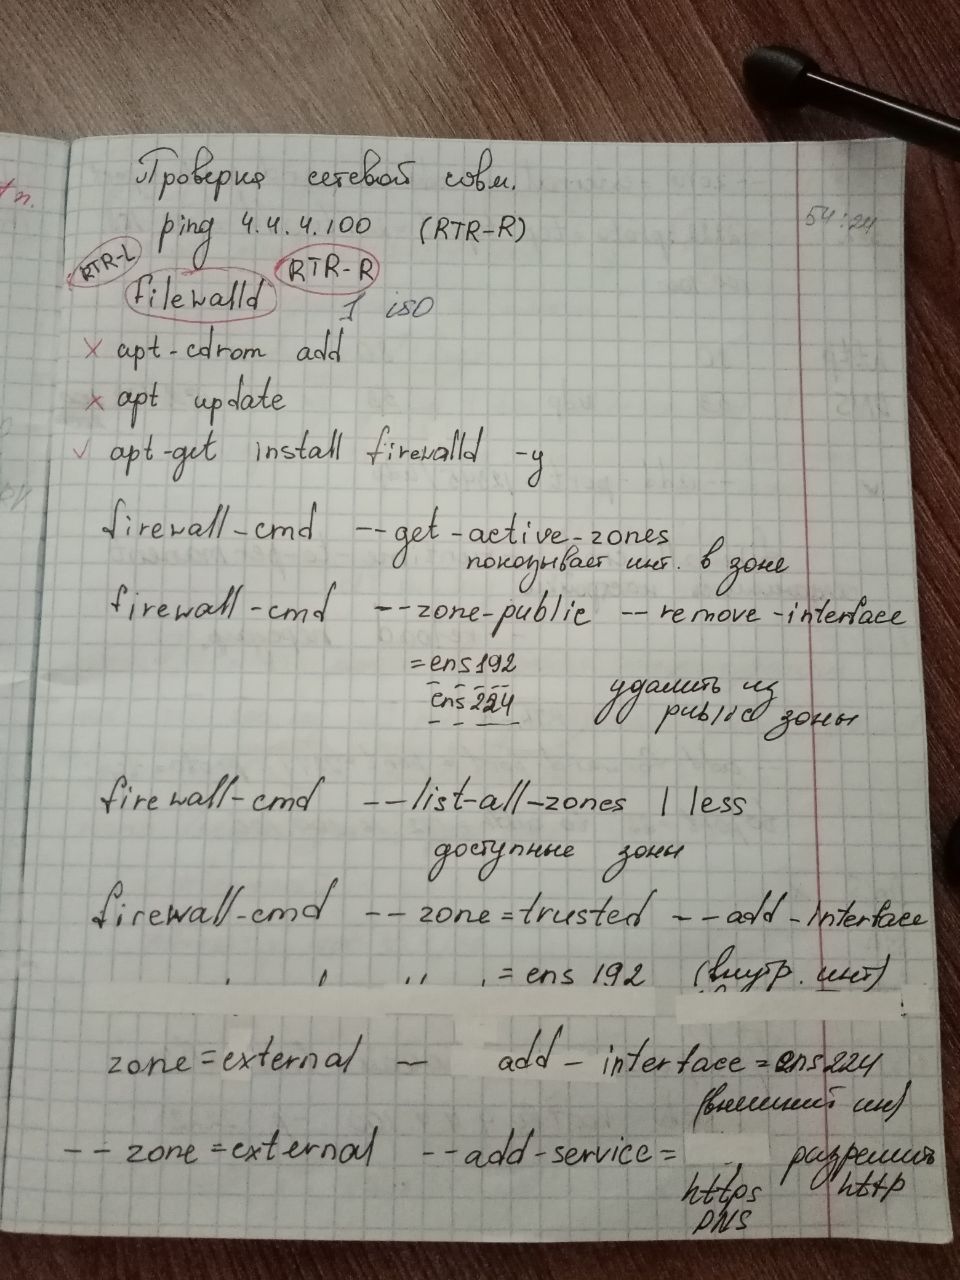 Проверка сетевой совм.
54:24
ping 4.4.4.100 (RTR-R)
RTR-L RTR-R
filewalld
1 iso
× apt-cdrom add
× apt update
✓ apt-get install firewalld -y
firewall-cmd --get-active-zones
показывает инт. в зоне
firewall-cmd --zone-public --remove-interface
=ens192
ens224
удалить из
public зоны
firewall-cmd --list-all-zones | less
доступные зоны
firewall-cmd --zone=trusted --add-interface
=ens192 (внутр. инт)
zone=external — add-interface=ens224
(внешний ин)
--zone=external --add-service= разрешить
https http
DNS